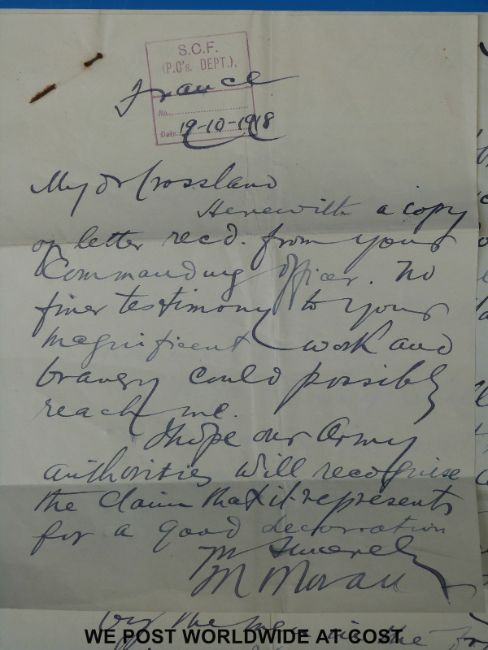 S.C.F.
(P.C's. DEPT.).
France
No.
Date 19-10-1918
My dr Crossland
Herewith a copy
of letter recd. from your
Commanding Officer. No
finer testimony to your
magnificent work and
bravery could possibly
reach me.
I hope our Army
authorities will recognise
the claim that it represents
for a good decoration
Sincerely
M Moran
WE POST WORLDWIDE AT COST